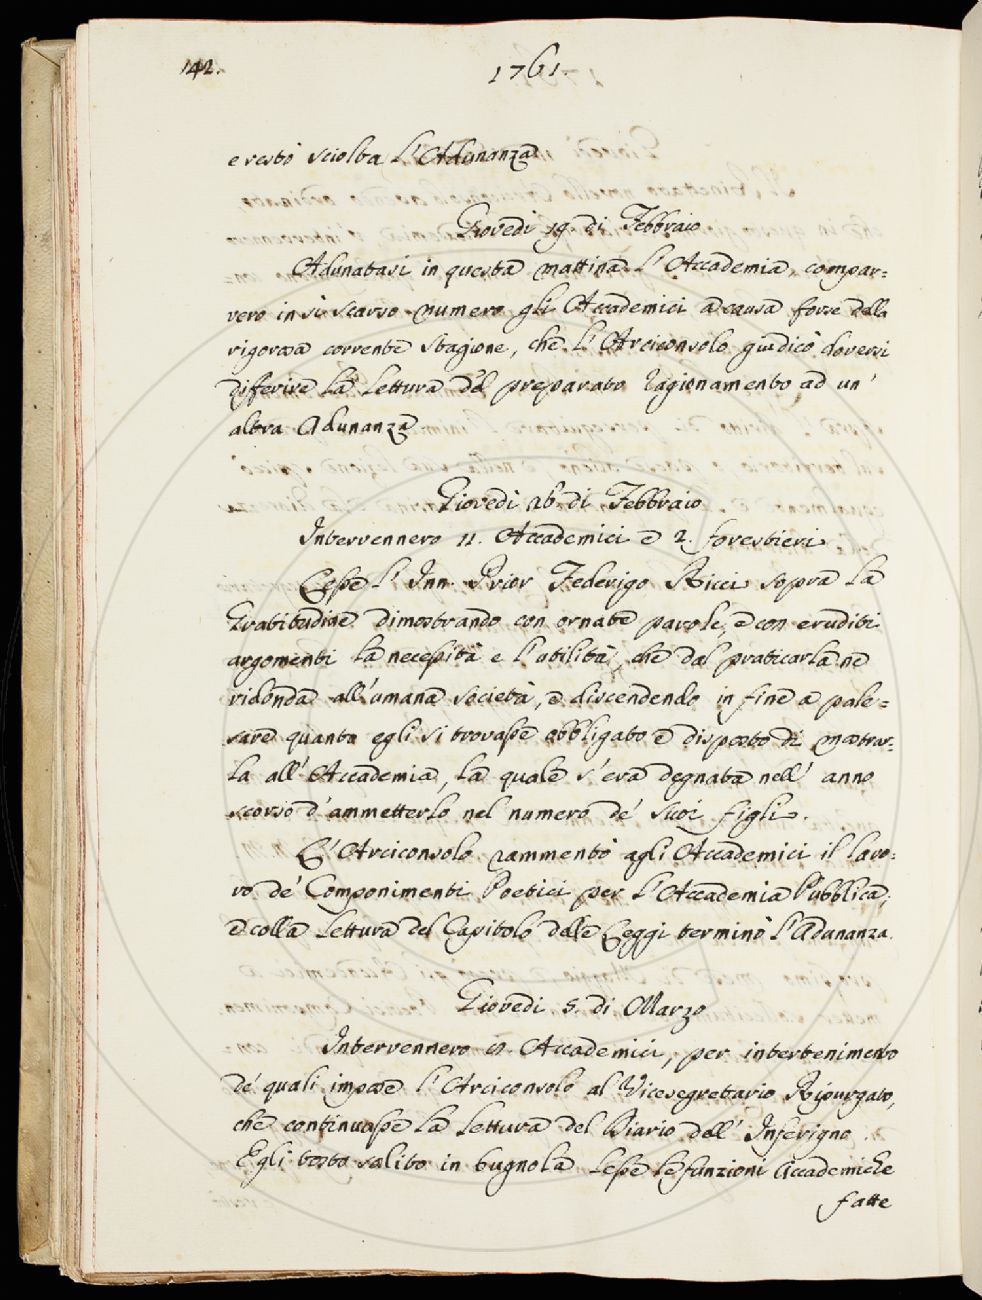 142.
1761.
e restò sciolta L'Adunanza
Giovedì 19. di Febbraio
Adunatasi in questa mattina L'Accademia, compar=
vero in sì scarso numero gli Accademici a causa forse della
rigorosa corrente stagione, che L'Arciconsolo giudicò doversi
diferire La Lettura del preparato ragionamento ad un'
altra Adunanza
Giovedì 26. di Febbraio
Intervennero 11. Accademici e 2. forestieri
Lesse L'Inn. Prior Federigo Ricci sopra la
Gratitudine dimostrando con ornate parole, e con eruditi
argomenti la necessità e l'utilità, che dal praticarla ne
ridonda all'umana società, e discendendo in fine a pale=
sare quanto egli si trovasse obbligato e disposto di mostrar=
la all'Accademia, la quale s'era degnata nell'anno
scorso d'ammetterlo nel numero de' suoi figli.
L'Arciconsolo rammentò agli Accademici il lavo=
ro de' Componimenti Poetici per L'Accademia Pubblica,
e colla Lettura del Capitolo delle Leggi terminò l'Adunanza.
Giovedì 5. di Marzo
Intervennero Accademici, per intertenimento
de' quali impose l'Arciconsolo al Vicesegretario Ripurgato,
che continuasse La Lettura del Diario dell'Inferigno.
Egli tosto salito in bugnola Lesse le funzioni Accademiche
fatte